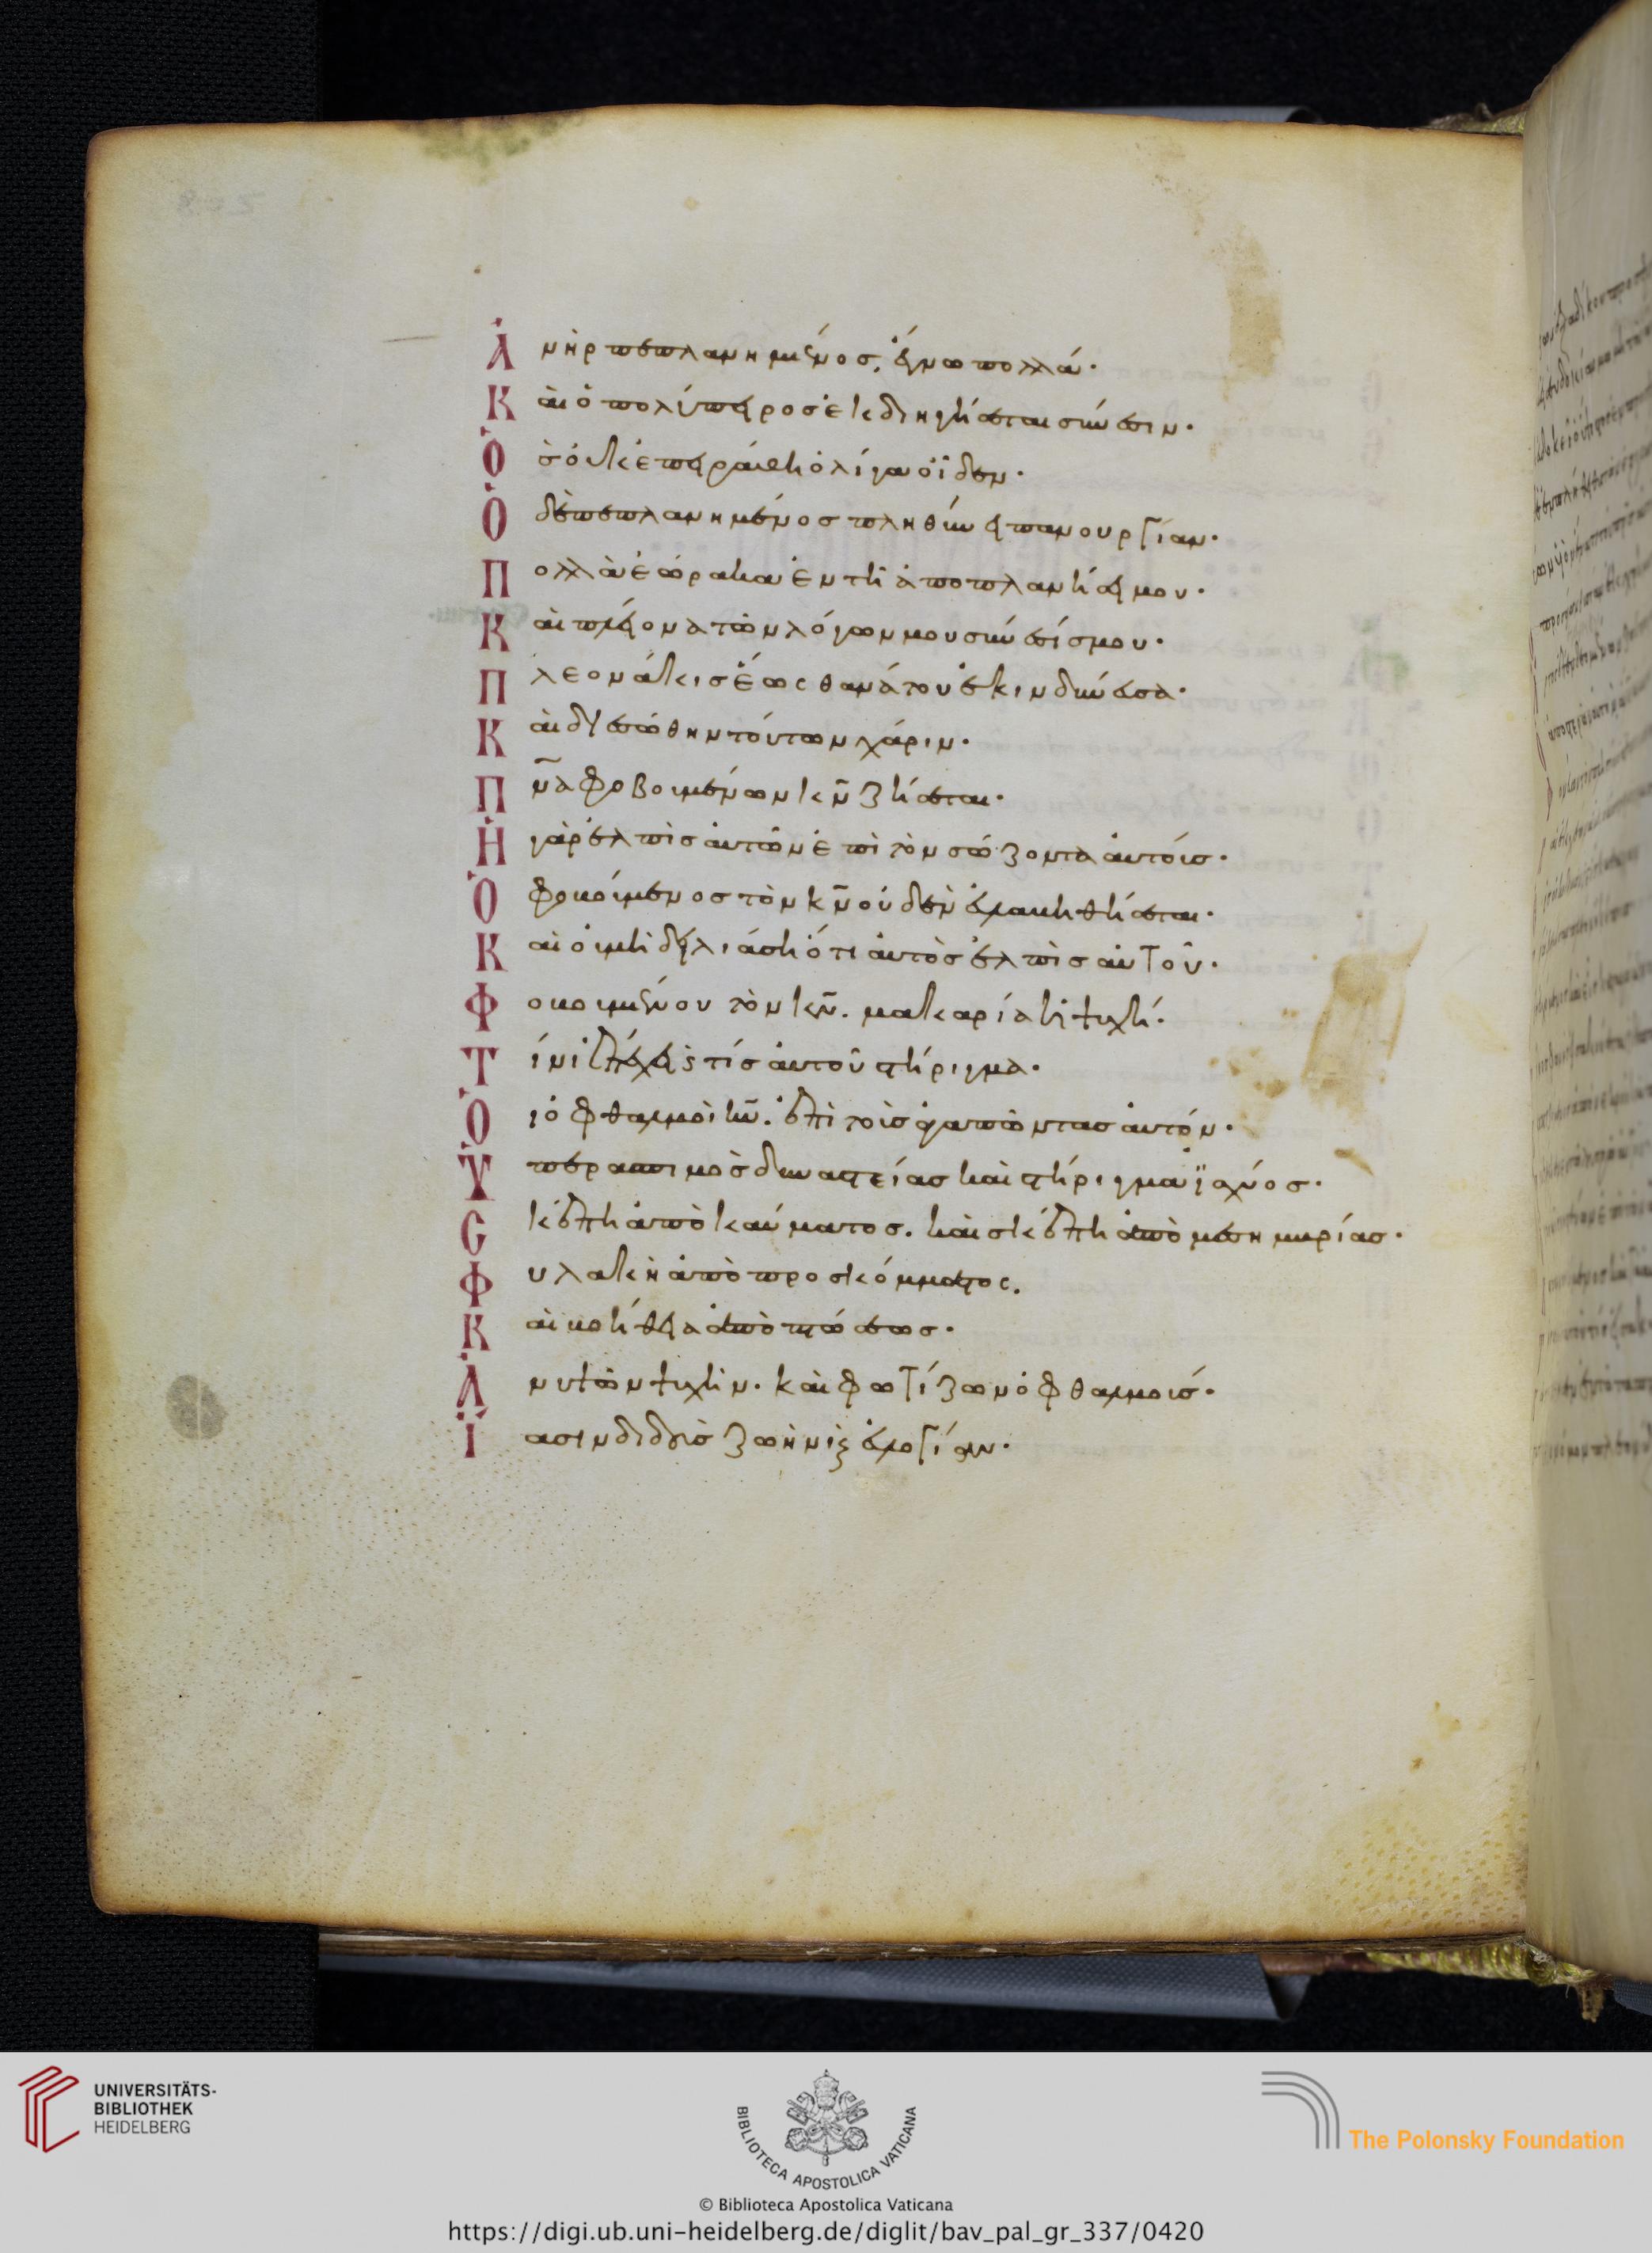 Ἀνὴρ πεπλανημένος, ἔγνω πολλά·
Καὶ ὁ πολύπειρος ἐκδιηγήσεται σύνεσιν·
Ὃς οὐκ ἐπειράθη ὀλίγα οἶδεν·
Ὁ δὲ πεπλανημένος πληθύνει πανουργίαν·
Πολλὰ ἑώρακα ἐν τῆ ἀποπλανήσει μου·
Καὶ πλείονα τῶν λόγων μου σύνεσίς μου·
Πλεονάκις ἕως θανάτου ἐκινδύνευσα·
Καὶ διεσώθην τούτων χάριν·
Πν̅α φοβουμένων κν̅ ζήσεται·
Ἡ γὰρ ἐλπὶς αὐτῶν ἐπὶ τὸν σώζοντα αὐτούς·
Ὁ φοβούμενος τὸν κν̅ οὐδὲν εὐλαβηθήσεται·
Καὶ οὐ μὴ δειλιάση ὅτι αὐτὸς ἐλπὶς αὐτοῦ·
Φοβουμένου τὸν κν̅. μακαρία ἡ ψυχή·
Τίνι ἐπέχει καὶ τίς αὐτοῦ στήριγμα·
Ὁι ὀφθαλμοὶ κυ̅. ἐπὶ τοὺς ἀγαπῶντας αὐτόν·
Ὑπερασπισμὸς δυναστείας καὶ στήριγμα ἰσχύος·
Σκέπη ἀπὸ καύματος. καὶ σκέπη ἀπὸ μεσημβρίας·
Φυλακὴ ἀπὸ προσκόμματος.
Καὶ βοήθεια ἀπὸ πτώσεως·
Ἀνυψῶν ψυχὴν. καὶ φωτίζων ὀφθαλμούς·
Ἴασιν διδοὺς ζωὴν καὶ εὐλογίαν·
UNIVERSITÄTS-
BIBLIOTHEK
HEIDELBERG
BIBLIOTECA APOSTOLICA VATICANA
The Polonsky Foundation
© Biblioteca Apostolica Vaticana
https://digi.ub.uni-heidelberg.de/diglit/bav_pal_gr_337/0420